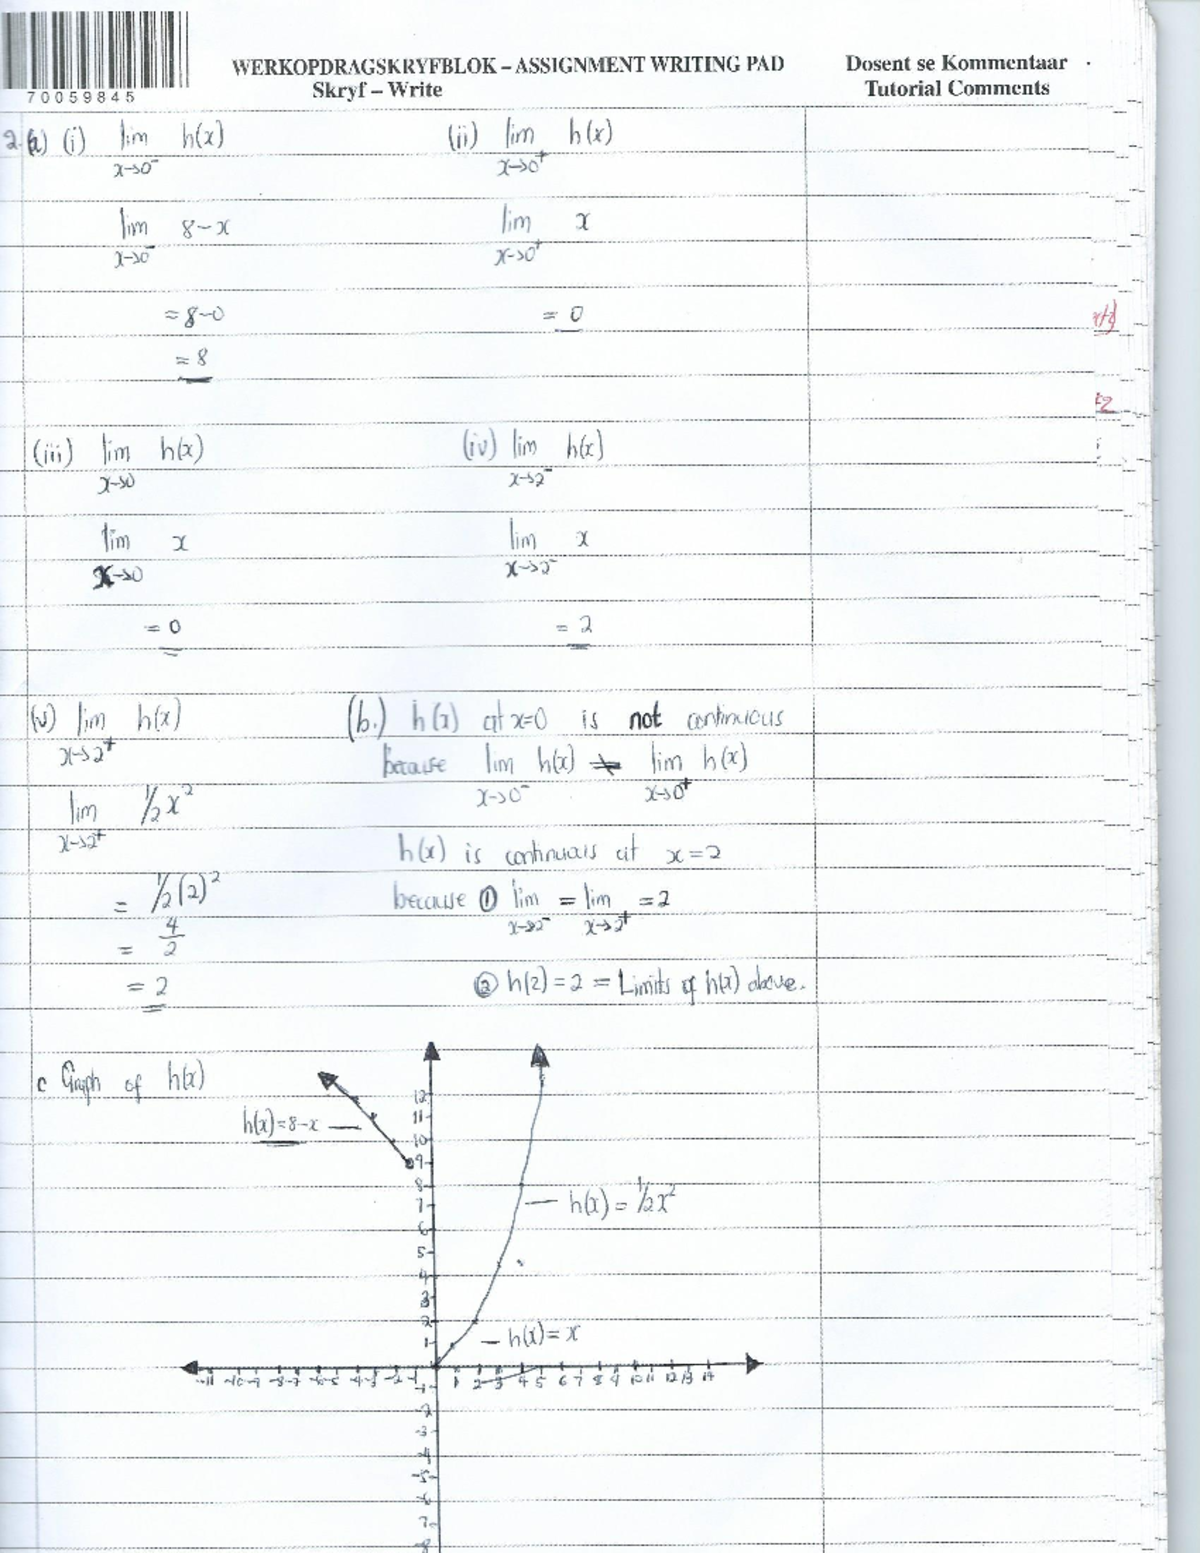 70059845
WERKOPDRAGSKRYFBLOK – ASSIGNMENT WRITING PAD
Skryf – Write
Dosent se Kommentaar
Tutorial Comments
2.(a) (i) lim x→0⁻ h(x)
lim x→0⁻ 8-x
= 8-0
= 8
(ii) lim x→0⁺ h(x)
lim x→0⁺ x
= 0
(iii) lim x→0 h(x)
lim x→0 x
= 0
(iv) lim x→2⁻ h(x)
lim x→2⁻ x
= 2
(v) lim x→2⁺ h(x)
lim x→2⁺ ½x²
= ½(2)²
= 4/2
= 2
(b.) h(x) at x=0 is not continuous
because lim x→0⁻ h(x) ≠ lim x→0⁺ h(x)
h(x) is continuous at x=2
because ① lim x→2⁻ = lim x→2⁺ = 2
② h(2) = 2 = Limits of h(x) above.
c Graph of h(x)
h(x)=8-x
h(x) = ½x²
h(x) = x
12
11
10
9
8
7
6
5
4
3
2
1
-11 -10 -9 -8 -7 -6 -5 -4 -3 -2 -1 1 2 3 4 5 6 7 8 9 10 11 12 13 14
-1
-2
-3
-4
-5
-6
7
-8